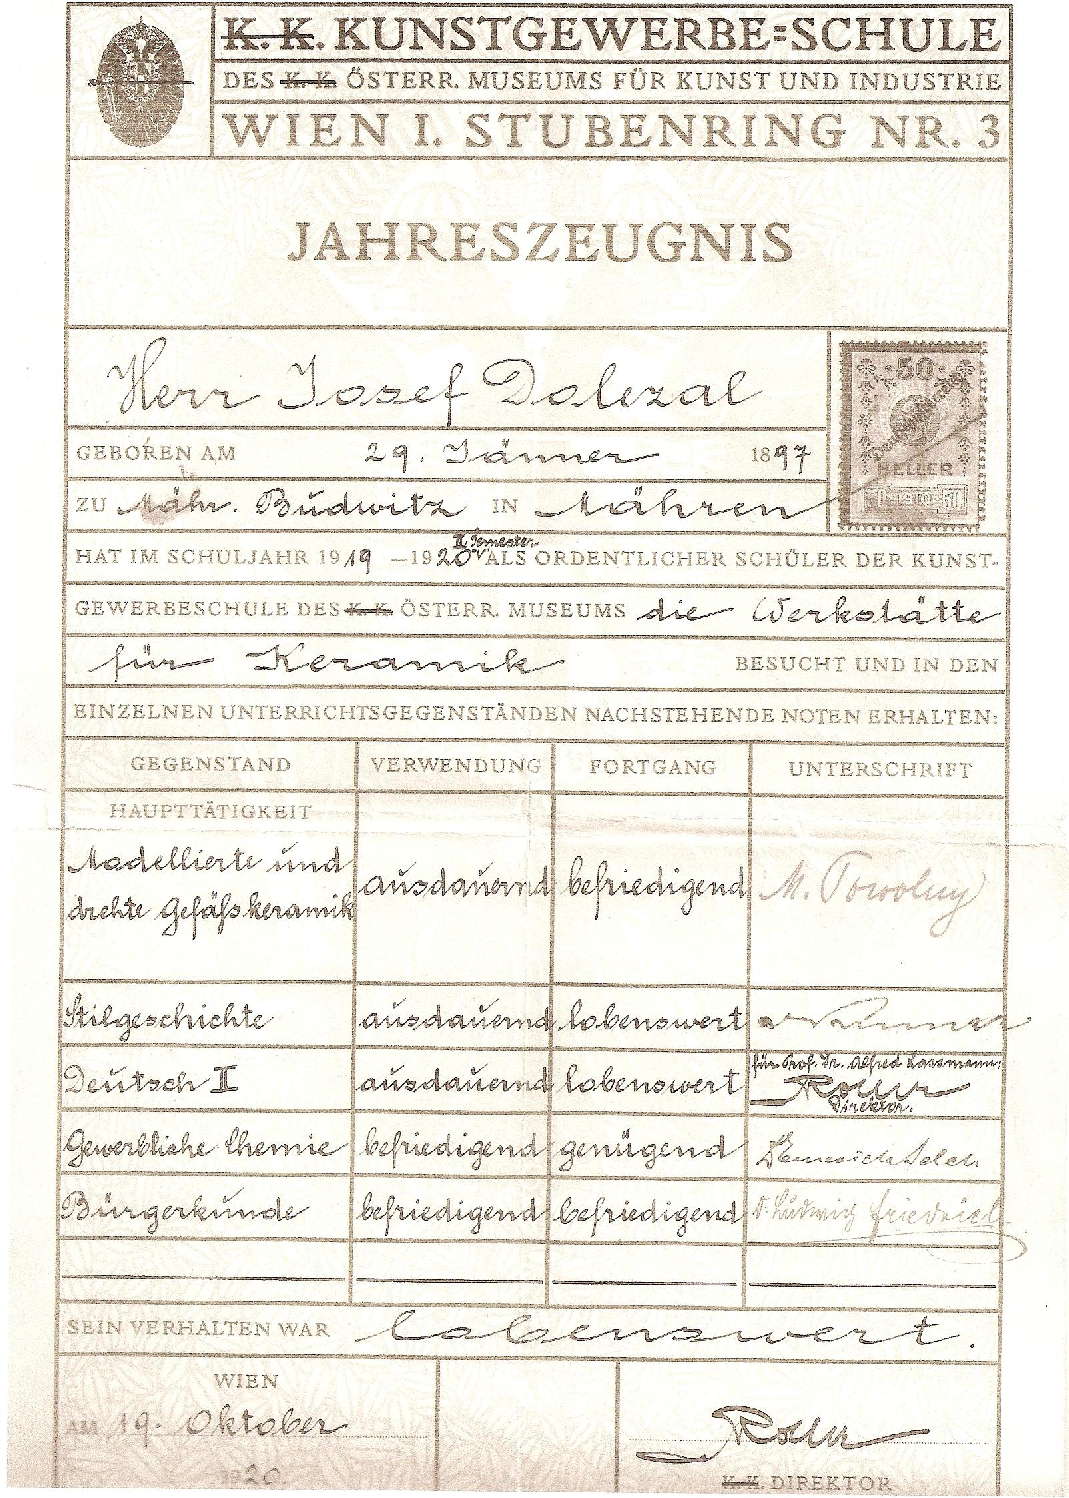 K. K. KUNSTGEWERBE=SCHULE
DES K. K. ÖSTERR. MUSEUMS FÜR KUNST UND INDUSTRIE
WIEN I. STUBENRING NR. 3
JAHRESZEUGNIS
Herr Josef Dolezal
50
HELLER
GEBOREN AM 29. Jänner 1897
ZU Mähr. Budwitz IN Mähren
II. Semester
HAT IM SCHULJAHR 1919 –1920 ALS ORDENTLICHER SCHÜLER DER KUNST-
GEWERBESCHULE DES K. K. ÖSTERR. MUSEUMS die Werkstätte
für Keramik BESUCHT UND IN DEN
EINZELNEN UNTERRICHTSGEGENSTÄNDEN NACHSTEHENDE NOTEN ERHALTEN:
GEGENSTAND VERWENDUNG FORTGANG UNTERSCHRIFT
HAUPTTÄTIGKEIT
Modellierte und
drehte Gefäßkeramik ausdauernd befriedigend M. Powolny
Stilgeschichte ausdauernd lobenswert
für Prof. Dr. Alfred
Deutsch II ausdauernd lobenswert Roller
Direktor.
Gewerbliche Chemie befriedigend genügend Selch
Bürgerkunde befriedigend befriedigend Dr. Ludwig Friedrich
SEIN VERHALTEN WAR lobenswert.
WIEN
AM 19. Oktober
1920
Roller
K. K. DIREKTOR